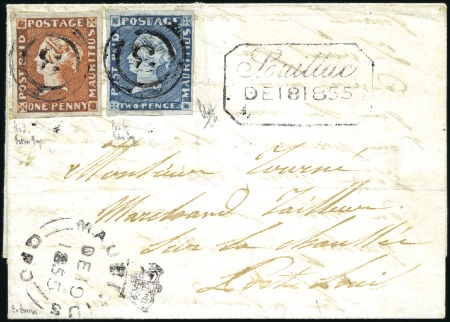 POSTAGE
POST PAID
MAURITIUS
ONE PENNY
POSTAGE
POST PAID
MAURITIUS
TWO PENCE
Souillac
DE 18 1855
Monsieur Tourné
Marchand Tailleur
Sur la chaussée
Port Louis
MAURITIUS
DE 19
1855